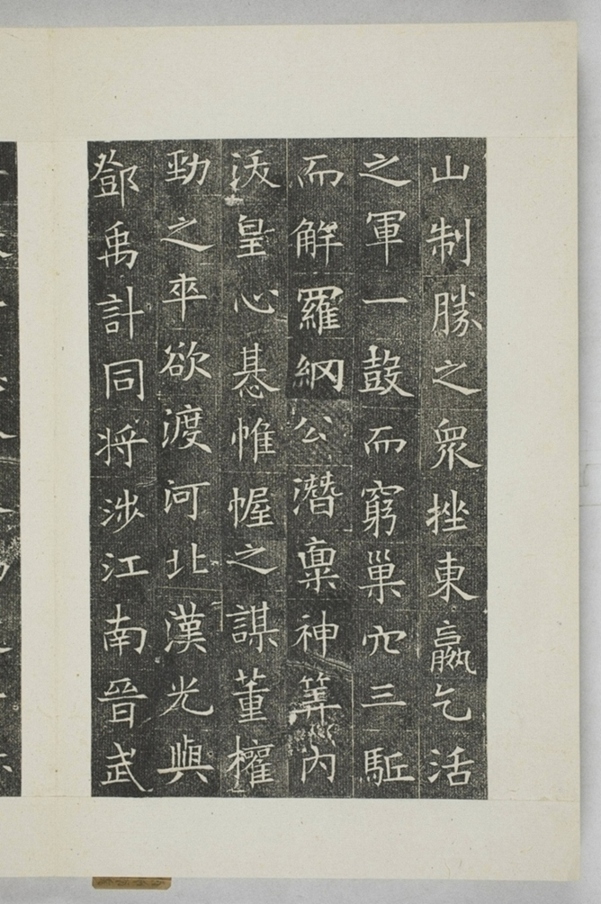 山制勝之眾挫東嬴乞活
之軍一鼓而窮巢穴三駈
而解羅網公潛稟神筭內
沃皇心惎帷幄之謀董權
勁之卒欲渡河北漢光與
鄧禹計同將涉江南晉武